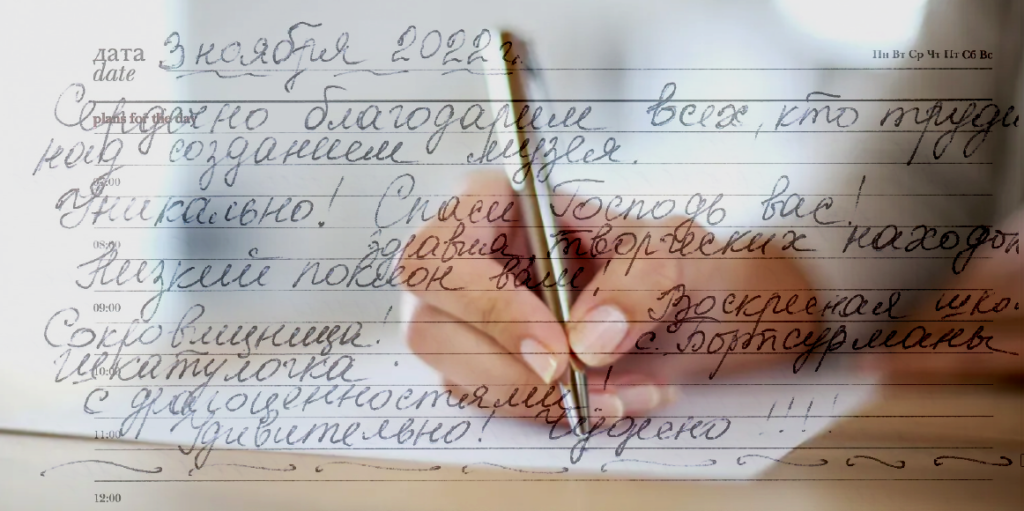 дата 3 ноября 2022 г. Пн Вт Ср Чт Пт Сб Вс
date
Сердечно благодарим всех, кто труди
plans for the day
над созданием музея.
Уникально! Спаси Господь вас!
08:00
здравия творческих находок
Низкий поклон вам!
09:00
Воскресная шко
Сокровищница!
с. Бортсурманы
Шкатулочка
10:00
с драгоценностями!
11:00
Удивительно! Чудесно !!!!
12:00